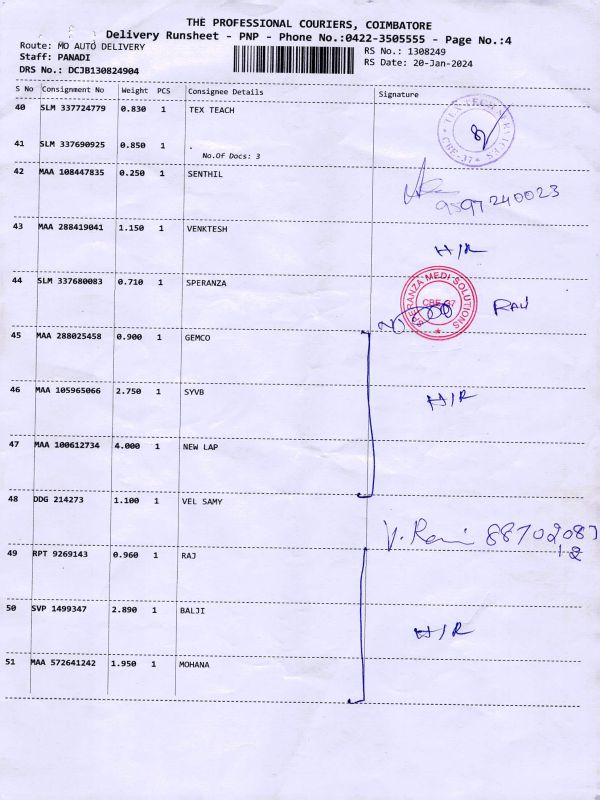 THE PROFESSIONAL COURIERS, COIMBATORE
Delivery Runsheet - PNP - Phone No.:0422-3505555 - Page No.:4
Route: MO AUTO DELIVERY
RS No.: 1308249
Staff: PANADI
RS Date: 20-Jan-2024
DRS No.: DCJB130824904
S No Consignment No Weight PCS Consignee Details Signature
40 SLM 337724779 0.830 1 TEX TEACH
41 SLM 337690925 0.850 1 .
No.Of Docs: 3
CBE-37
42 MAA 108447835 0.250 1 SENTHIL
9597240023
43 MAA 288419041 1.150 1 VENKTESH
H/R
44 SLM 337680083 0.710 1 SPERANZA
SPERANZA MEDI SOLUTIONS
CBE-37
45 MAA 288025458 0.900 1 GEMCO
46 MAA 105965066 2.750 1 SYVB H/R
47 MAA 100612734 4.000 1 NEW LAP
48 DDG 214273 1.100 1 VEL SAMY
V. Rani 88702087
12
49 RPT 9269143 0.960 1 RAJ
50 SVP 1499347 2.890 1 BALJI H/R
51 MAA 572641242 1.950 1 MOHANA